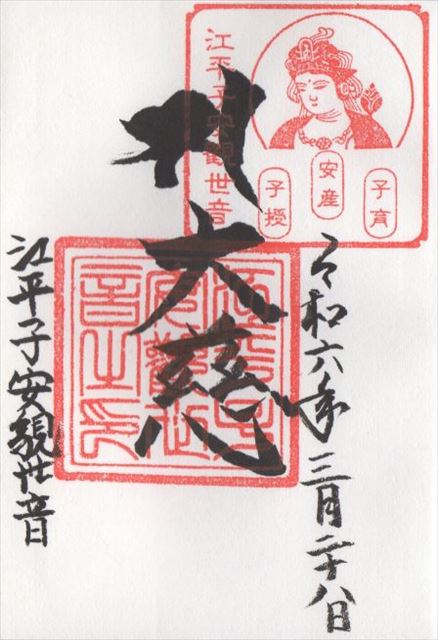 令和六年三月二十八日
大慈
江平子安観世音
江平子安観世音
子育
安産
子授